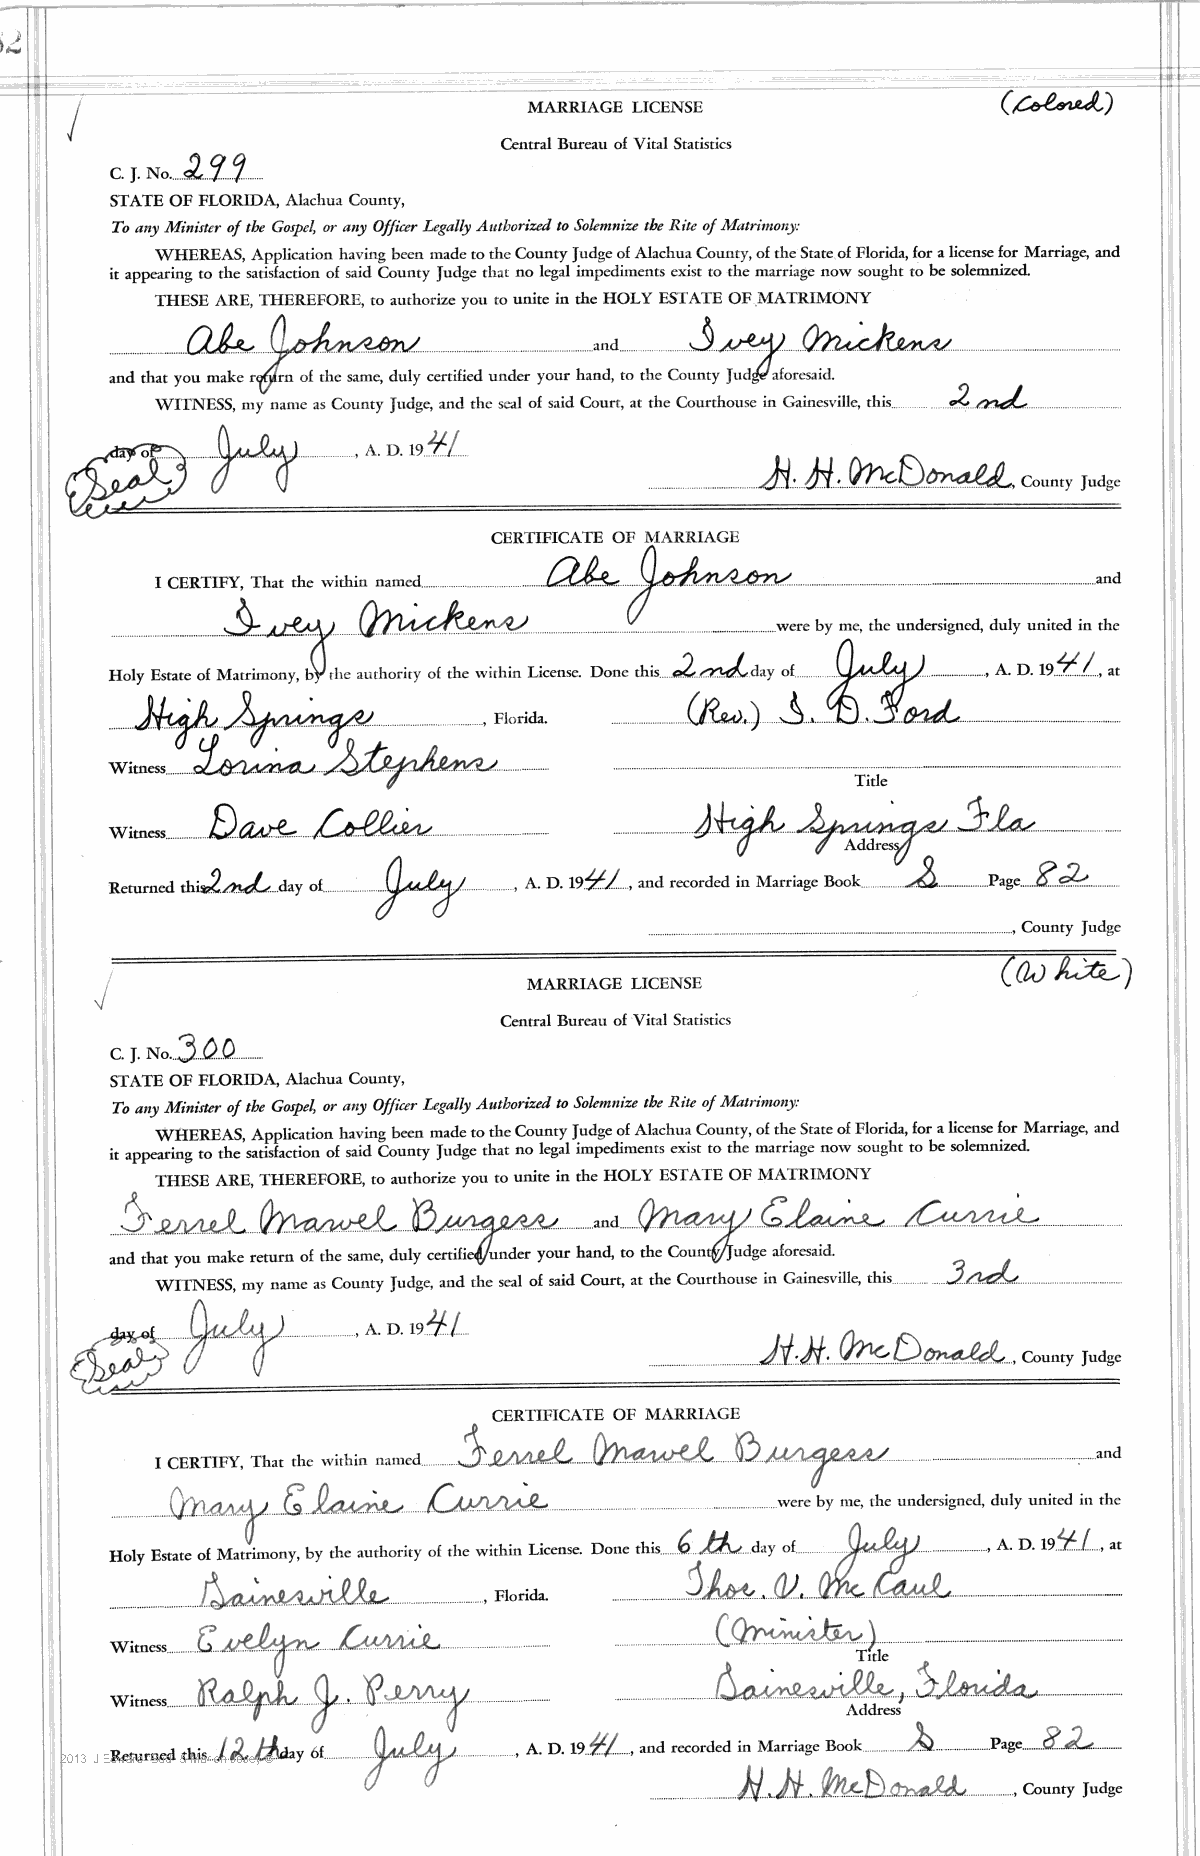 82
MARRIAGE LICENSE
(Colored)
Central Bureau of Vital Statistics
C. J. No. 299
STATE OF FLORIDA, Alachua County,
To any Minister of the Gospel, or any Officer Legally Authorized to Solemnize the Rite of Matrimony:
WHEREAS, Application having been made to the County Judge of Alachua County, of the State of Florida, for a license for Marriage, and
it appearing to the satisfaction of said County Judge that no legal impediments exist to the marriage now sought to be solemnized.
THESE ARE, THEREFORE, to authorize you to unite in the HOLY ESTATE OF MATRIMONY
Abe Johnson and Ivey Mickens
and that you make return of the same, duly certified under your hand, to the County Judge aforesaid.
WITNESS, my name as County Judge, and the seal of said Court, at the Courthouse in Gainesville, this 2nd
day of July, A. D. 1941
(Seal)
H. H. McDonald, County Judge
CERTIFICATE OF MARRIAGE
I CERTIFY, That the within named Abe Johnson and
Ivey Mickens were by me, the undersigned, duly united in the
Holy Estate of Matrimony, by the authority of the within License. Done this 2nd day of July, A. D. 1941, at
High Springs, Florida. (Rev.) I. D. Ford
Witness Lorina Stephens
Title
Witness Dave Collier High Springs Fla
Address
Returned this 2nd day of July, A. D. 1941, and recorded in Marriage Book S Page 82
, County Judge
MARRIAGE LICENSE
(White)
Central Bureau of Vital Statistics
C. J. No. 300
STATE OF FLORIDA, Alachua County,
To any Minister of the Gospel, or any Officer Legally Authorized to Solemnize the Rite of Matrimony:
WHEREAS, Application having been made to the County Judge of Alachua County, of the State of Florida, for a license for Marriage, and
it appearing to the satisfaction of said County Judge that no legal impediments exist to the marriage now sought to be solemnized.
THESE ARE, THEREFORE, to authorize you to unite in the HOLY ESTATE OF MATRIMONY
Ferrel Mawel Burgess and Mary Elaine Currie
and that you make return of the same, duly certified under your hand, to the County Judge aforesaid.
WITNESS, my name as County Judge, and the seal of said Court, at the Courthouse in Gainesville, this 3rd
day of July, A. D. 1941
(Seal)
H. H. McDonald, County Judge
CERTIFICATE OF MARRIAGE
I CERTIFY, That the within named Ferrel Mawel Burgess and
Mary Elaine Currie were by me, the undersigned, duly united in the
Holy Estate of Matrimony, by the authority of the within License. Done this 6th day of July, A. D. 1941, at
Gainesville, Florida. Thos. V. McCaul
Witness Evelyn Currie (Minister)
Title
Witness Ralph J. Perry Gainesville, Florida
Address
Returned this 12th day of July, A. D. 1941, and recorded in Marriage Book S Page 82
2013 J
H. H. McDonald, County Judge